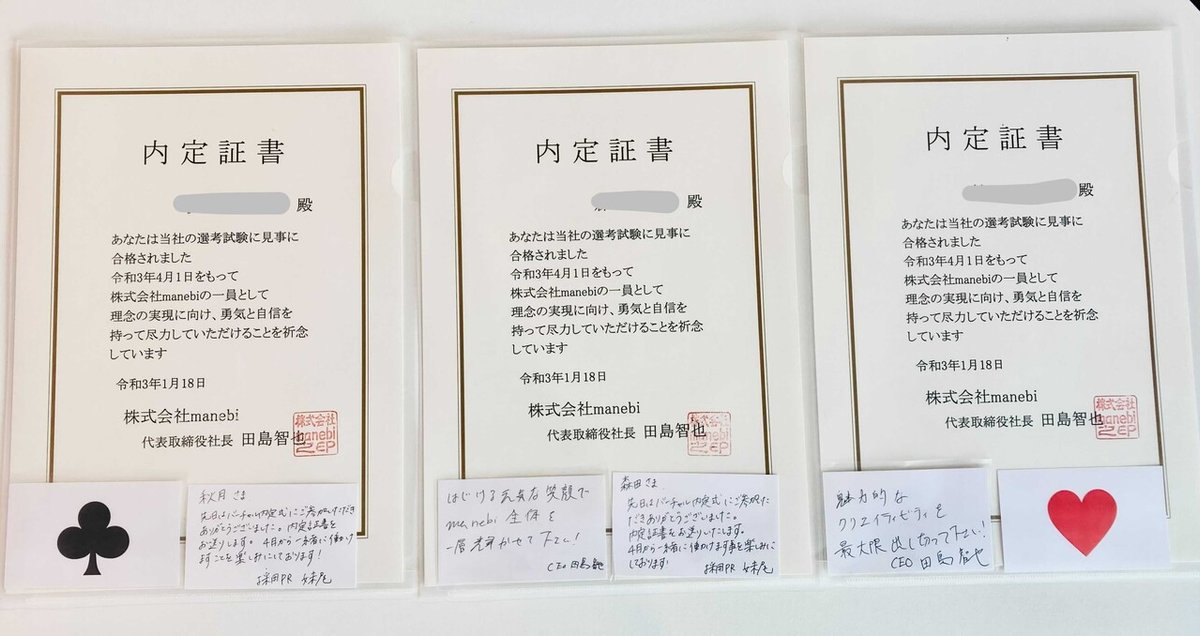 内定証書
殿
あなたは当社の選考試験に見事に
合格されました
令和3年4月1日をもって
株式会社manebiの一員として
理念の実現に向け、勇気と自信を
持って尽力していただけることを祈念
しています
令和3年1月18日
株式会社manebi
代表取締役社長 田島智也
株式会社
manebi
之印
秋月さま
先日はバーチャル内定式にご参加いただき
ありがとうございました。内定証書を
お送りします。4月から一緒に働け
ますことを楽しみにしております!
採用PR 妹尾
内定証書
殿
あなたは当社の選考試験に見事に
合格されました
令和3年4月1日をもって
株式会社manebiの一員として
理念の実現に向け、勇気と自信を
持って尽力していただけることを祈念
しています
令和3年1月18日
株式会社manebi
代表取締役社長 田島智也
株式会社
manebi
之印
はじける元気な笑顔で
manebi 全体を
一層輝かせて下さい!
CEO 田島智也
森田さま
先日はバーチャル内定式にご参加いた
だきありがとうございました。
内定証書をお送りいたします。
4月から一緒に働けます事を楽しみに
しております!
採用PR 妹尾
内定証書
殿
あなたは当社の選考試験に見事に
合格されました
令和3年4月1日をもって
株式会社manebiの一員として
理念の実現に向け、勇気と自信を
持って尽力していただけることを祈念
しています
令和3年1月18日
株式会社manebi
代表取締役社長 田島智也
株式会社
manebi
之印
魅力的な
クリエイティビティを
最大限出し切って下さい!
CEO 田島智也